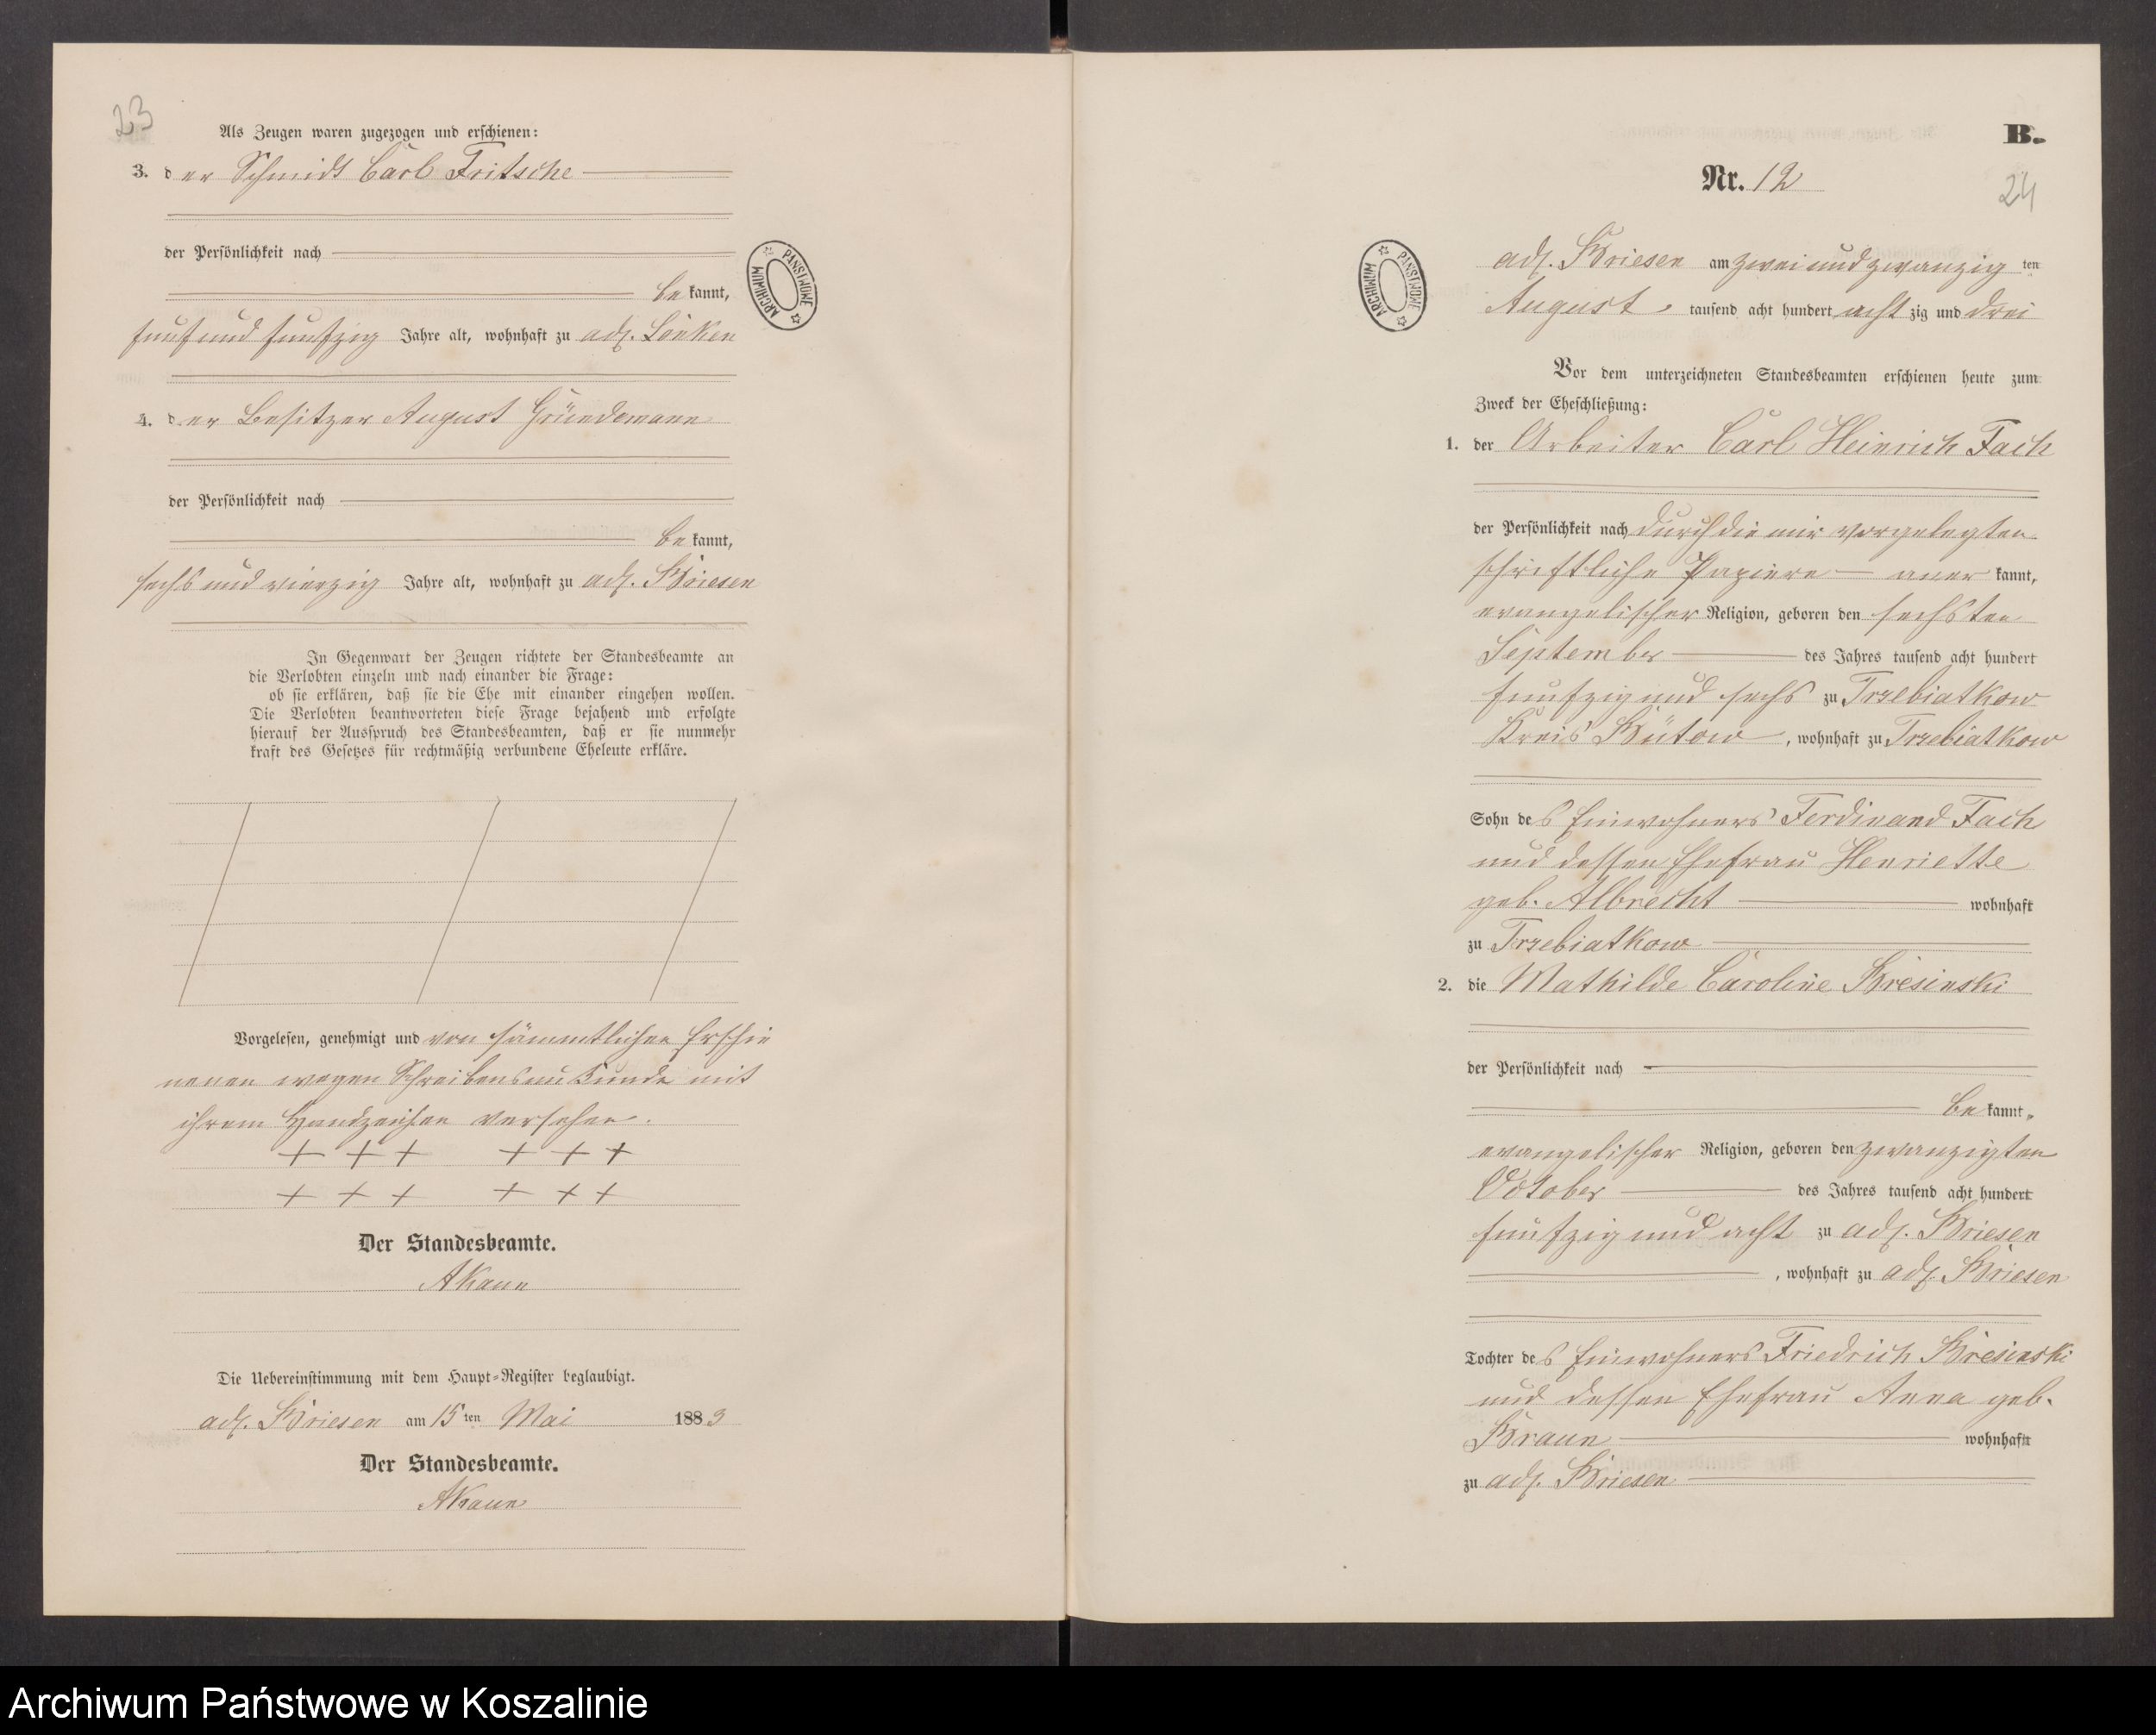 23
Als Zeugen waren zugezogen und erschienen:
3. der Schmidt Carl Fritsche
der Persönlichkeit nach
bekannt,
fünfundfünfzig Jahre alt, wohnhaft zu adl. Lonken
4. der Besitzer August Gründemann
der Persönlichkeit nach
bekannt,
sechsundvierzig Jahre alt, wohnhaft zu adl. Briesen
In Gegenwart der Zeugen richtete der Standesbeamte an
die Verlobten einzeln und nach einander die Frage:
ob sie erklären, daß sie die Ehe mit einander eingehen wollen.
Die Verlobten beantworteten diese Frage bejahend und erfolgte
hierauf der Ausspruch des Standesbeamten, daß er sie nunmehr
kraft des Gesetzes für rechtmäßig verbundene Eheleute erkläre.
Vorgelesen, genehmigt und von sämmtlichen Erschie
nenen wegen Schreibensunkunde mit
ihrem Handzeichen versehen.
+ + + + + +
+ + + + + +
Der Standesbeamte.
AKaun
Die Uebereinstimmung mit dem Haupt=Register beglaubigt.
adl. Briesen am 15ten Mai 1883
Der Standesbeamte.
AKaun
ARCHIWUM PAŃSTWOWE
B.
Nr. 12
24
ARCHIWUM PAŃSTWOWE
adl. Briesen am zweiundzwanzigten
August tausend acht hundert achtzig und drei
Vor dem unterzeichneten Standesbeamten erschienen heute zum
Zweck der Eheschließung:
1. der Arbeiter Carl Heinrich Fach
der Persönlichkeit nach durch die mir vorgelegten
schriftliche Papiere anerkannt,
evangelischer Religion, geboren den sechsten
September des Jahres tausend acht hundert
fünfzig und sechs zu Trzebiatkow
Kreis Bütow, wohnhaft zu Trzebiatkow
Sohn des Einwohners Ferdinand Fach
und dessen Ehefrau Henriette
geb. Albrecht wohnhaft
zu Trzebiatkow
2. die Mathilde Caroline Bresinski
der Persönlichkeit nach
bekannt,
evangelischer Religion, geboren den zwanzigten
October des Jahres tausend acht hundert
fünfzig und acht zu adl. Briesen
, wohnhaft zu adl. Briesen
Tochter des Einwohners Friedrich Bresinski
und dessen Ehefrau Anna geb.
Braun wohnhaft
zu adl. Briesen
Archiwum Państwowe w Koszalinie